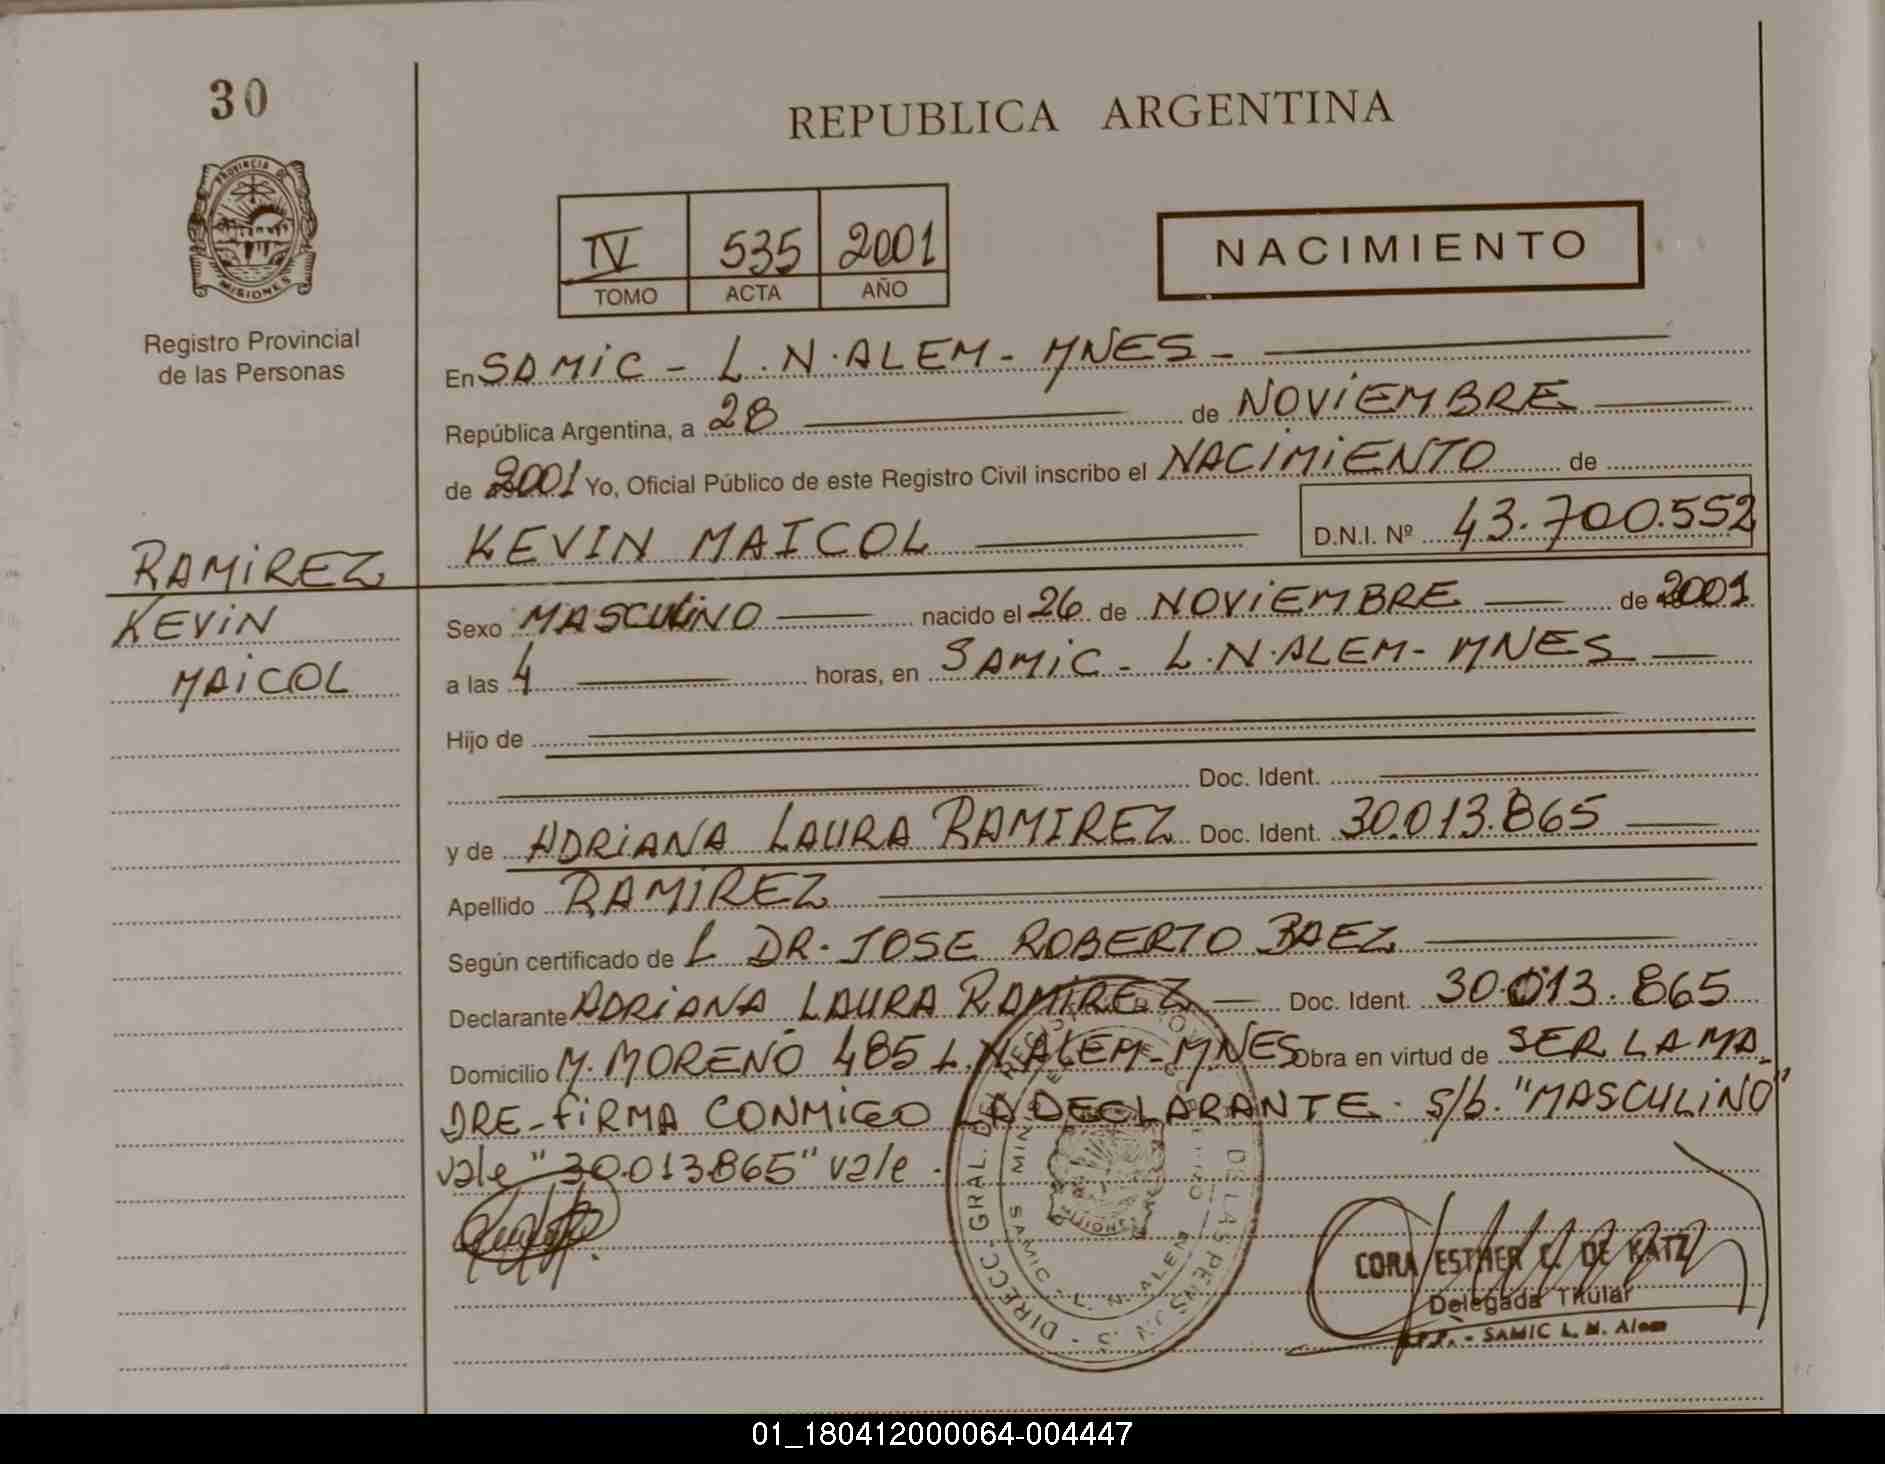 30
REPUBLICA ARGENTINA
PROVINCIA DE
MISIONES
IV 535 2001
TOMO ACTA AÑO
NACIMIENTO
Registro Provincial
de las Personas
En SAMIC - L.N.ALEM - MNES -
República Argentina, a 28 de NOVIEMBRE
de 2001 Yo, Oficial Público de este Registro Civil inscribo el NACIMIENTO de
KEVIN MAICOL D.N.I. Nº 43.700.552
RAMIREZ
KEVIN
MAICOL
Sexo MASCULINO nacido el 26 de NOVIEMBRE de 2001
a las 4 horas, en SAMIC - L.N.ALEM - MNES
Hijo de
Doc. Ident.
y de ADRIANA LAURA RAMIREZ Doc. Ident. 30.013.865
Apellido RAMIREZ
Según certificado de L DR. JOSE ROBERTO BAEZ
Declarante ADRIANA LAURA RAMIREZ Doc. Ident. 30.013.865
Domicilio M. MORENO 485 L.N.ALEM - MNES Obra en virtud de SER LA MA_
DRE - FIRMA CONMIGO LA DECLARANTE. s/b. "MASCULINO"
vale "30.013.865" vale.
DIRECC. GRAL. DE LAS PERSONAS
SAMIC - L. N. ALEM
MISIONES
CORA ESTHER C. DE KATZ
Delegada Titular
SAMIC L. N. Alem
01_180412000064-004447